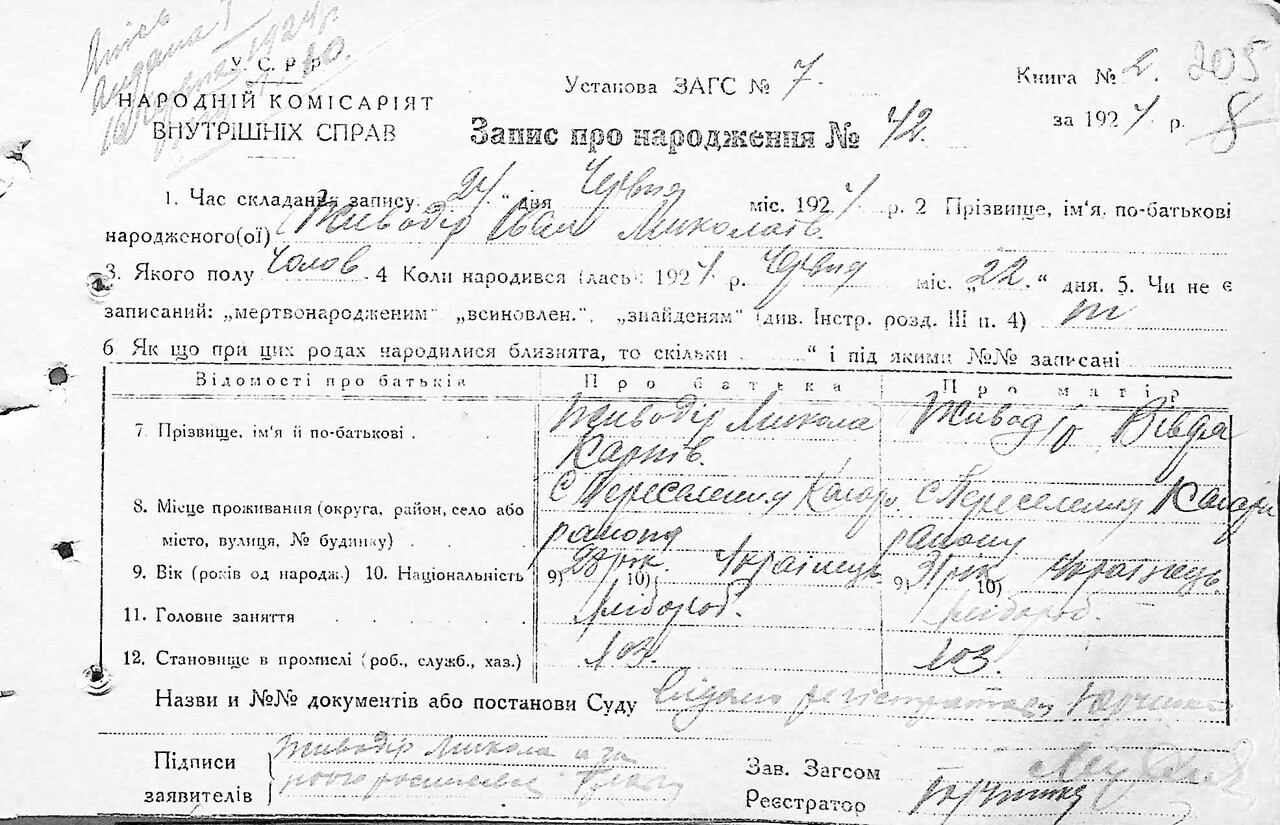 Книга № 2. 205
У. С. Р. Р.
Установа ЗАГС № 7.
НАРОДНІЙ КОМІСАРІЯТ
ВНУТРІШНІХ СПРАВ
за 1924 р. 8
Запис про народження № 42.
1. Час складання запису: 24 " дня Червня міс. 1924 р. 2 Прізвище, ім'я, по-батькові
народженого(ої) Живодір Іван Миколаїв.
3. Якого полу Чолов. 4 Коли народився (лась): 1924 р. Червня міс. „ 22. “ дня. 5. Чи не є
записаний: „мертвонародженим“ „всиновлен.“, „знайденям“ (див. Інстр. розд. III п. 4)
6 Як що при цих родах народилися близнята, то скільки “ і під якими №№ записані
Відомості про батьків Про батька Про матір
7. Прізвище, ім'я й по-батькові . Живодір Микола Живодір Вівдя
Карпів.
8. Місце проживання (округа, район, село або с Переселення Кагарл. с Переселення Кагарл
місто, вулиця, № будинку) . району району
9. Вік (років од народж.) 10. Національність 9) 10) Українець 9) 31 рік 10) Українець.
11. Головне заняття Хлібороб. Хлібороб.
12. Становище в промислі (роб., служб., хаз.)
Назви и №№ документів або постанови Суду
Підписи Живодір Микола
заявителів
Зав. Загсом
Реєстратор